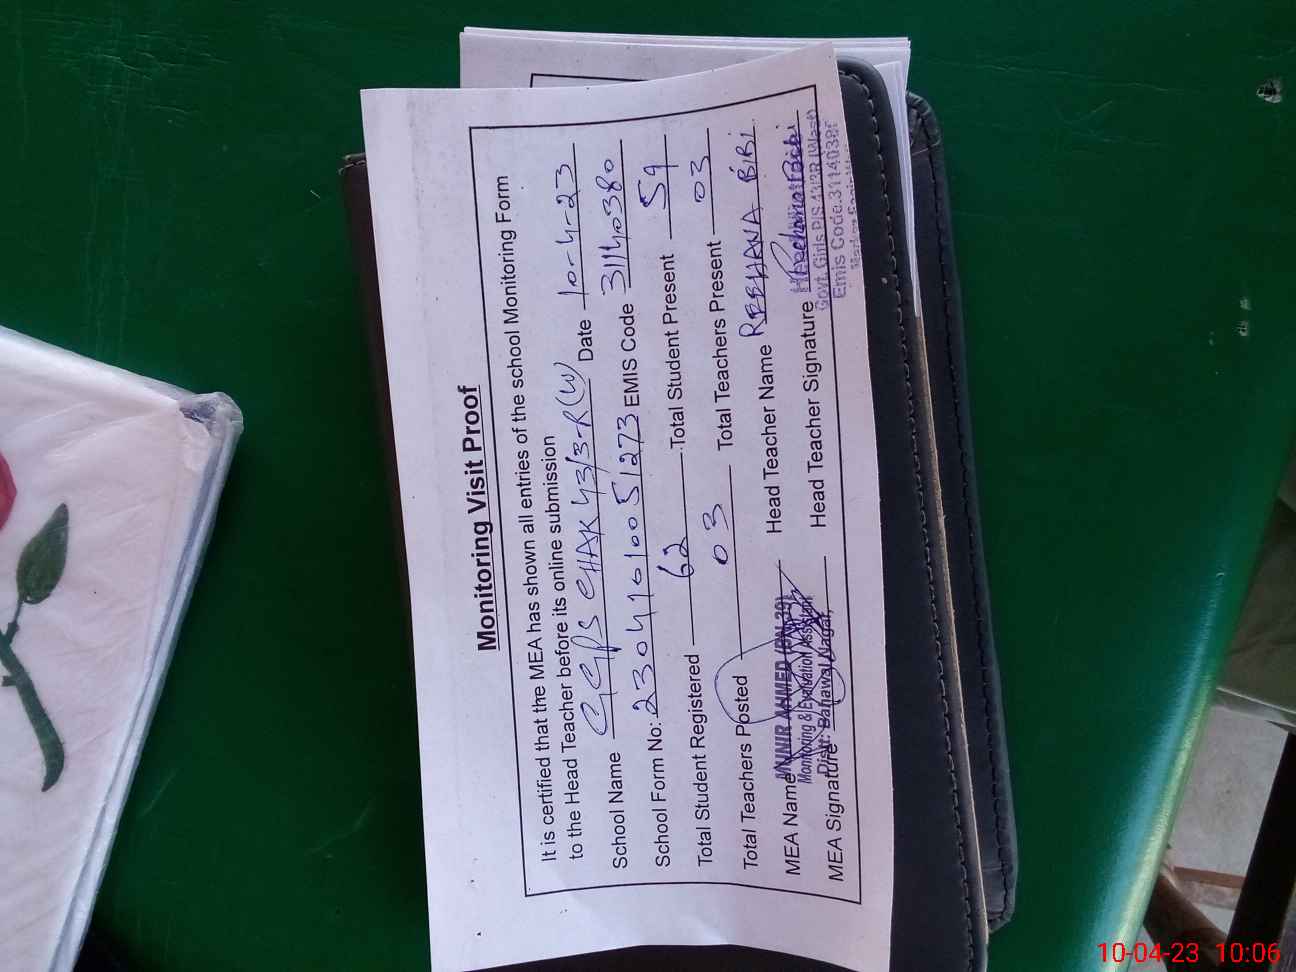 Monitoring Visit Proof
It is certified that the MEA has shown all entries of the school Monitoring Form
to the Head Teacher before its online submission
School Name GGPS CHAK 43/3-R(W) Date 10-4-23
School Form No: 23041610051273 EMIS Code 31140380
Total Student Registered 62 Total Student Present 59
Total Teachers Posted 03 Total Teachers Present 03
MEA Name MUNIR AHMED Head Teacher Name REEHANA BIBI
Monitoring & Evaluation Assistant
Distt: Bahawal Nagar
MEA Signature Head Teacher Signature
Govt. Girls P/S 43/3R (West)
Emis Code.31140380
10-04-23 10:06